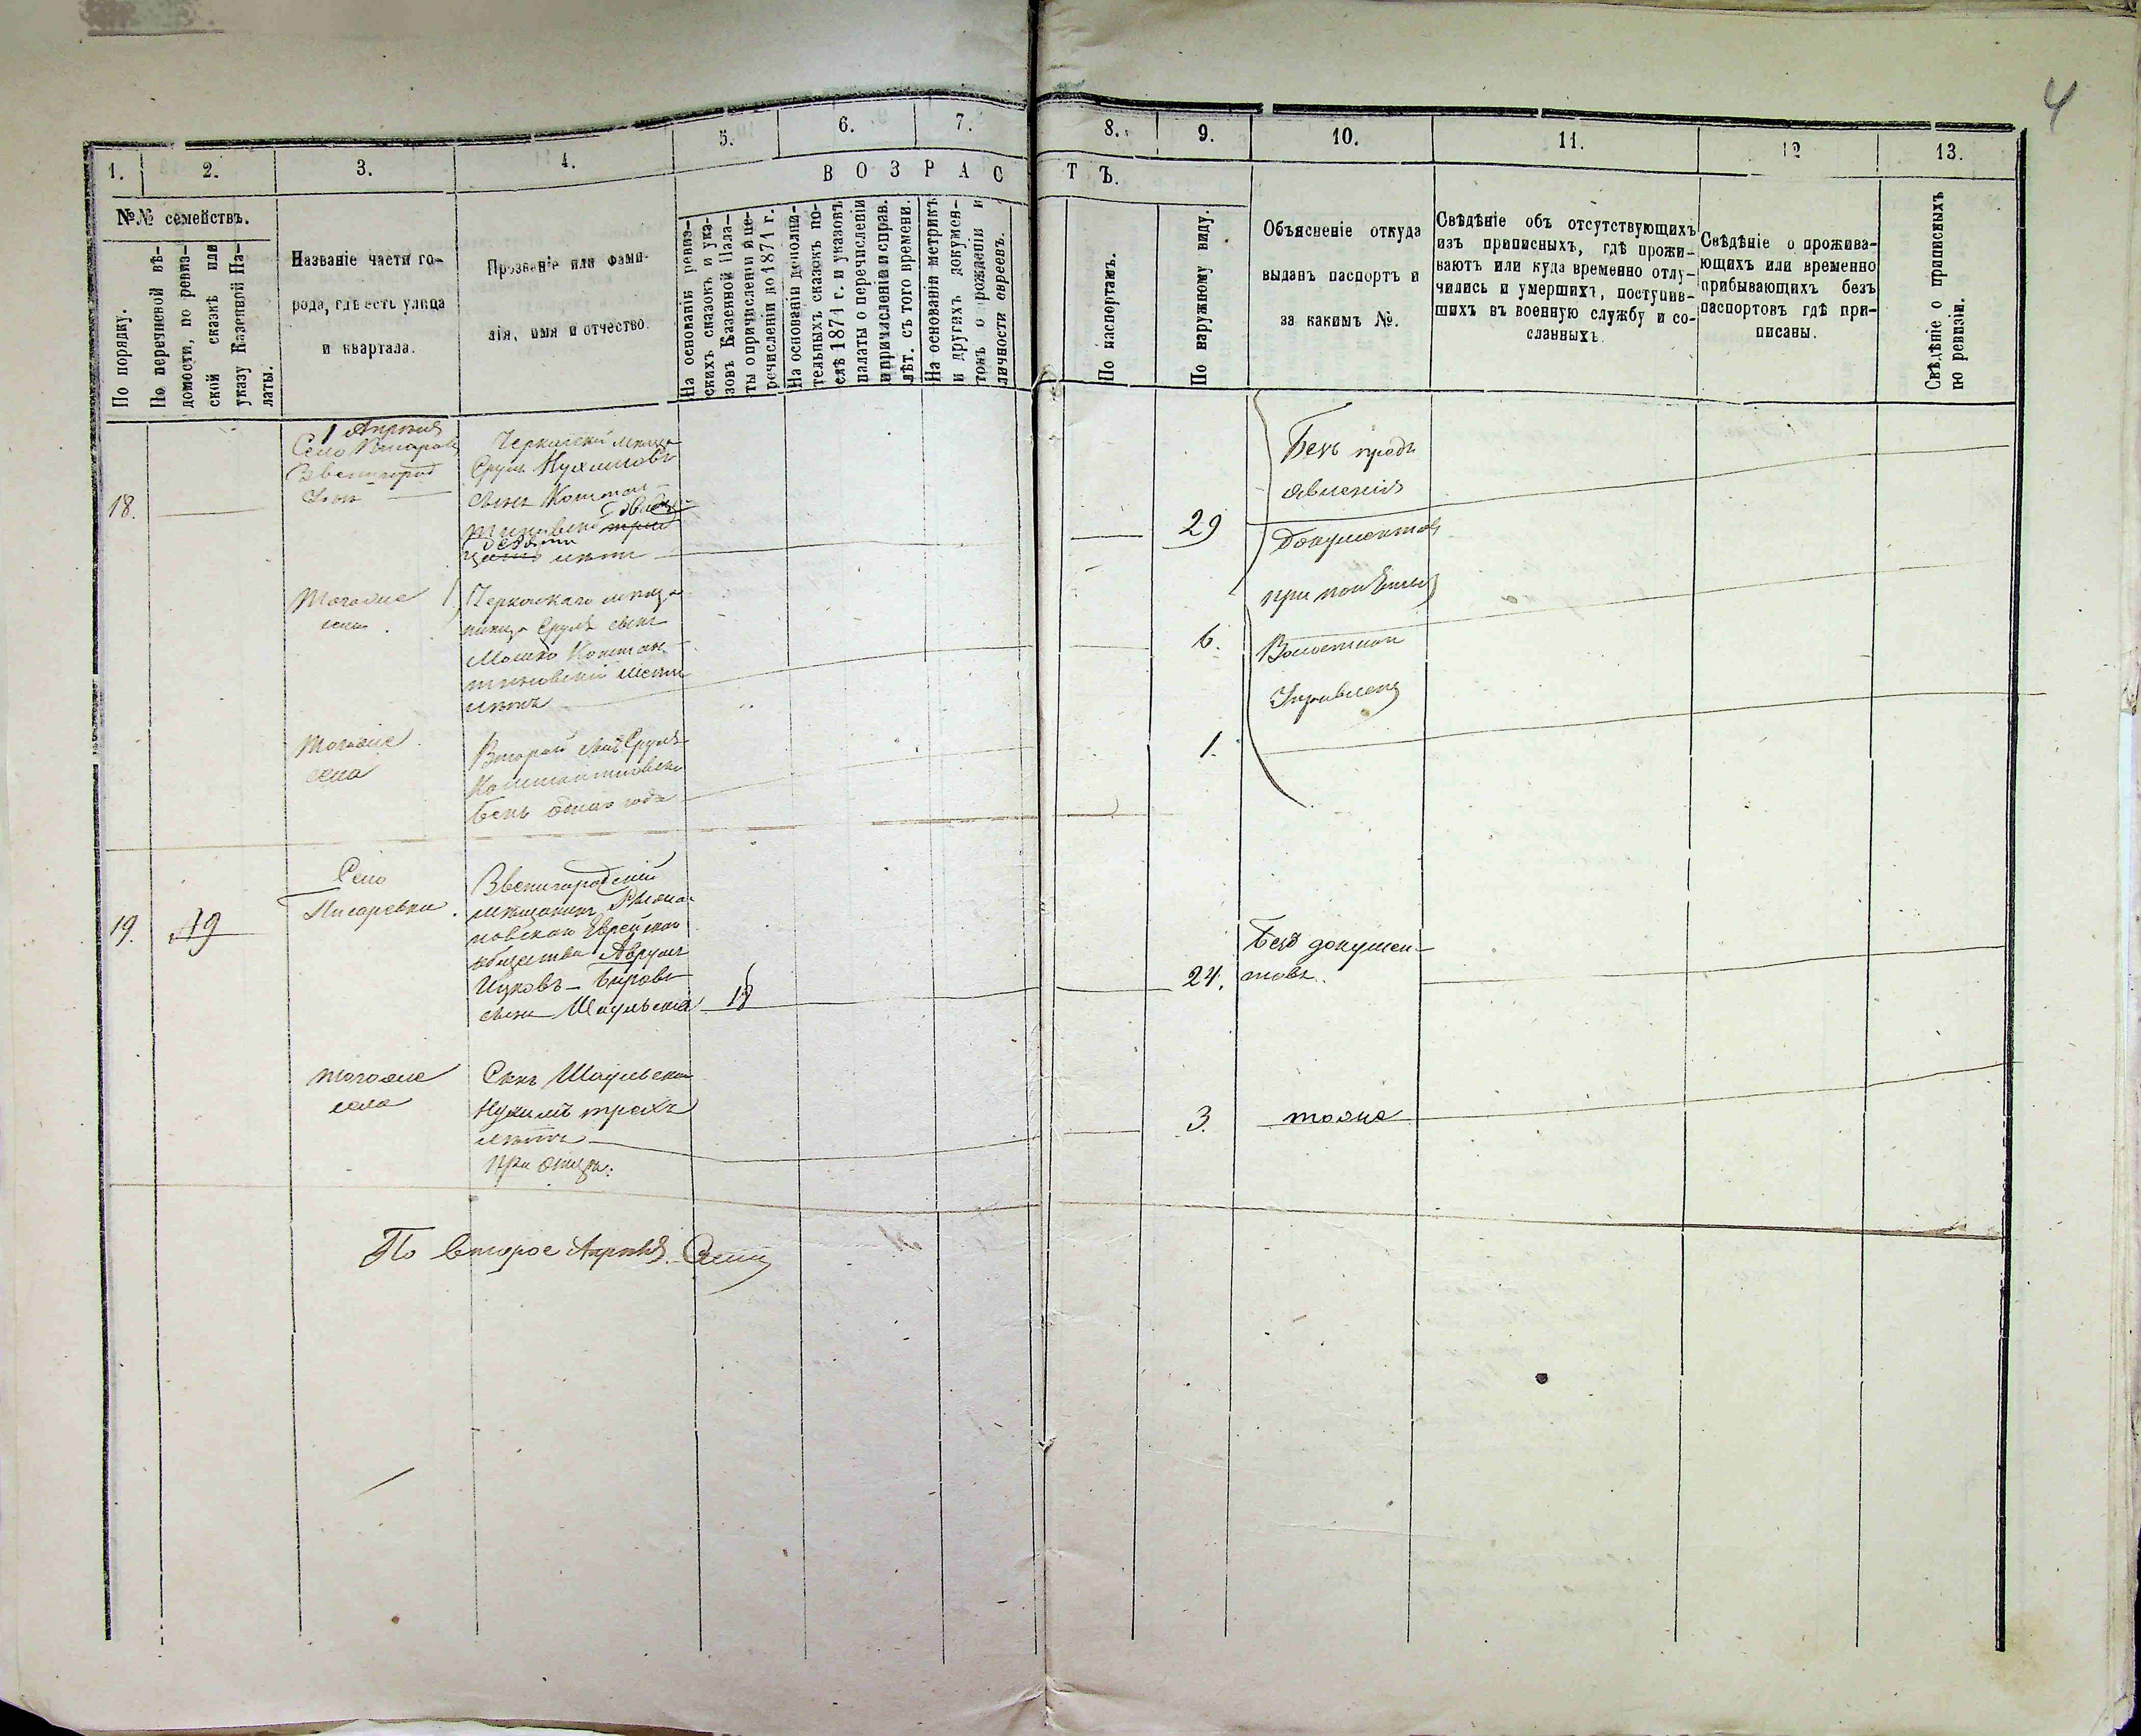 4
1.
2.
3.
4.
5.
6.
7.
8.
9.
10.
11.
12
13.
№№ семействъ.
По порядку.
По перечневой вѣ-
домости, по ревиз-
ской сказкѣ или
указу Казенной Па-
латы.
Названіе части го-
рода, гдѣ есть улица
и квартала.
Прозваніе или фами-
лія, имя и отчество.
ВОЗРАСТЪ.
На основаніи ревиз-
скихъ сказокъ и ука-
зовъ Казенной Пала-
ты о причисленіи и пе-
речисленіи до 1874 г.
На основаніи дополни-
тельныхъ сказокъ по-
слѣ 1874 г. и указовъ
палаты о перечисленіи
и причисленіи и справ.
лѣт. съ того времени.
На основаніи метрикъ
и другихъ докумен-
товъ о рожденіи и
личности евреевъ.
По паспортамъ.
По наружному виду.
Объясненіе откуда
выданъ паспортъ и
за какимъ №.
Свѣдѣніе объ отсутствующихъ
изъ приписныхъ, гдѣ прожи-
ваютъ или куда временно отлу-
чились и умершихъ, поступив-
шихъ въ военную службу и со-
сланныхъ.
Свѣдѣніе о прожива-
ющихъ или временно
прибывающихъ безъ
паспортовъ гдѣ при-
писаны.
Свѣдѣніе о приписныхъ
по ревизіи.
18.
1 Апрѣля
Село
Звенигород
Черкаскій мѣща
Срулъ Нухимовъ
сынъ Констан
тиновскій
лѣтъ
29
Безъ предъ
явленія
документов
при
Волостном
Управлени
Тогоже
села
Черкаскаго мѣща
нина Сруля сынъ
Мошко Констан
тиновскій шести
лѣтъ
6.
Тогоже
села
Второй сынъ Сруля
Константиновскі
Бенъ одного года
1.
19.
19
Село
Писаревки.
Звенигородскій
мѣщанинъ
Еврейскаго
общества Аврумъ
Ицковъ - Беровъ
сынъ Шаульскій
18
24.
Безъ докумен-
товъ.
Тогоже
села
Сынъ Шаульскаго
Нухимъ трехъ
лѣтъ
при отцѣ.
3.
тоже
По второе Апрѣля